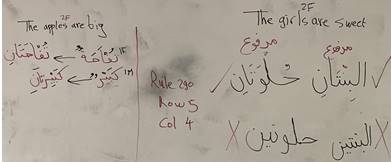 2F
The apples are big
تُفَّاحَتَانِ ← تُفَّاحَة 1F
كَبِيرَتَانِ ← كَبِيْر 1M
Rule 290
Row 5
Col 4
2F
The girls are sweet
مرفوع مرفوع
البِنْتَانِ حُلْوَتَانِ
البنتين حلوتين